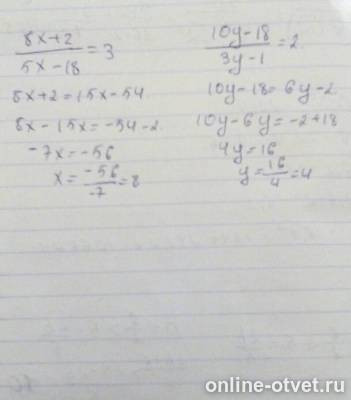 (8x+2)/(5x-18) = 3
8x+2=15x-54
8x-15x=-54-2
-7x=-56
x=-56/-7=8
(10y-18)/(3y-1) = 2
10y-18=6y-2
10y-6y=-2+18
4y=16
y=16/4=4
online-otvet.ru